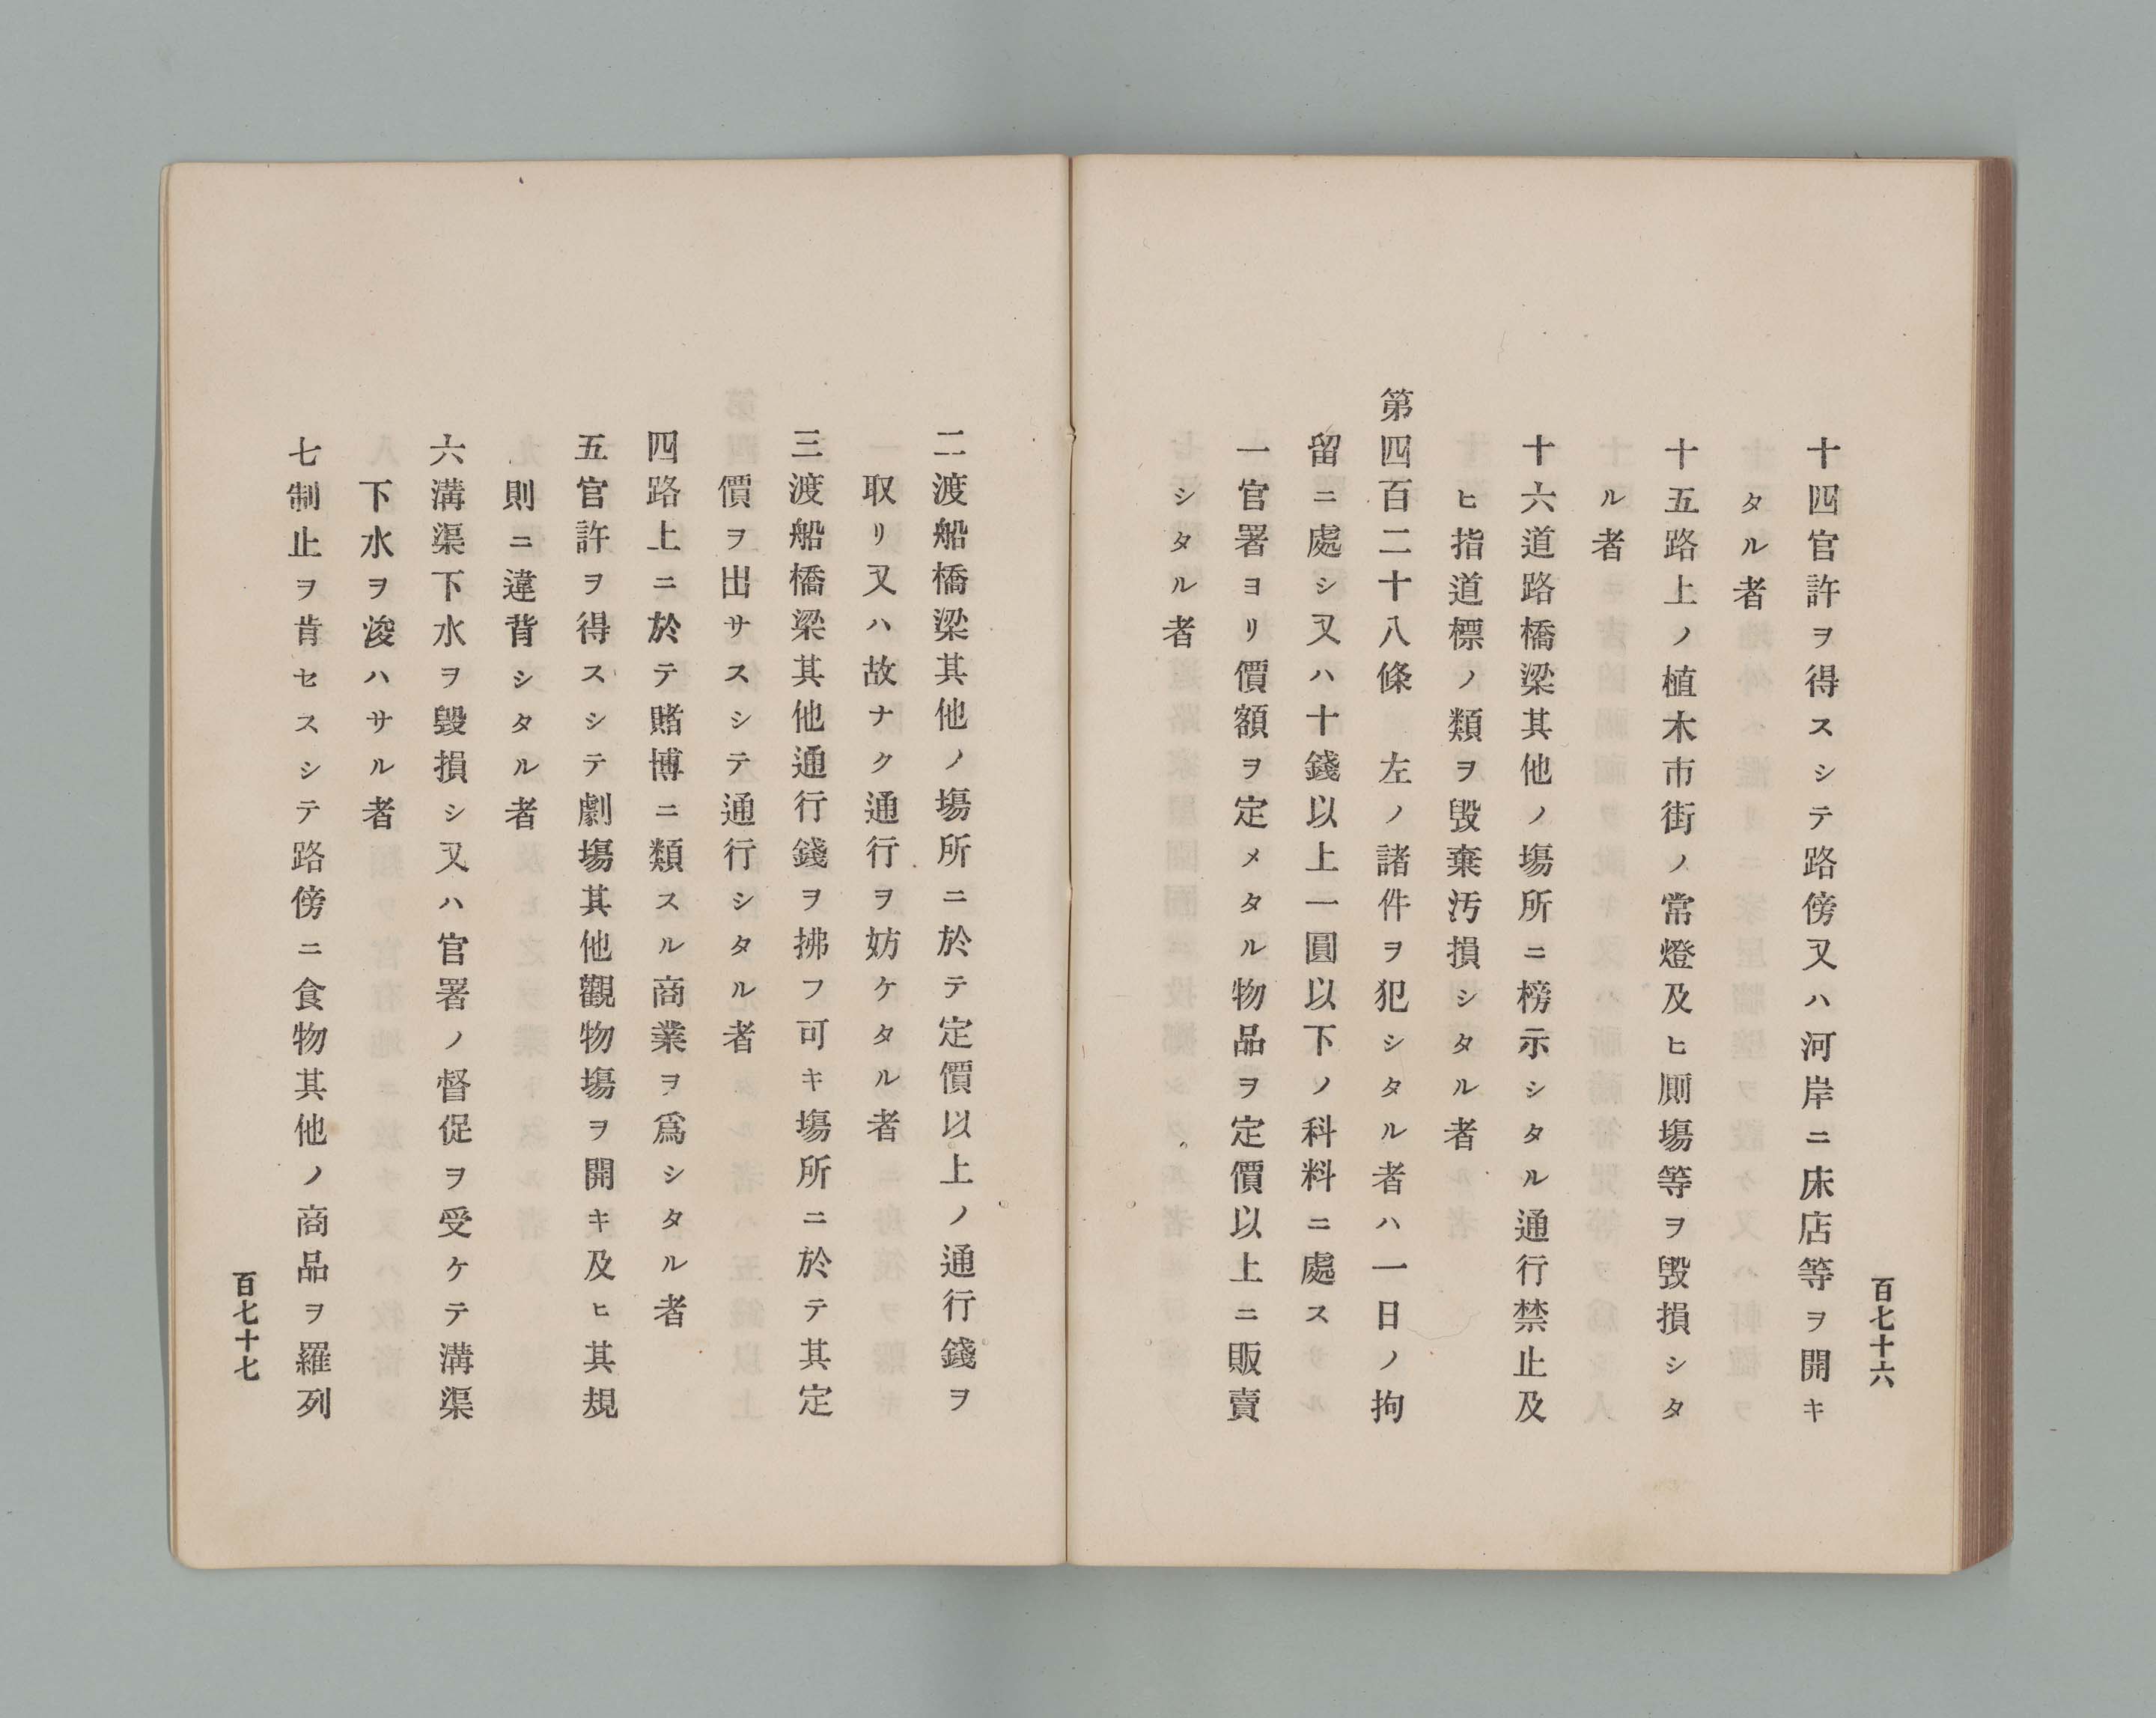 百七十六
十四官許ヲ得スシテ路傍又ハ河岸ニ床店等ヲ開キ
タル者
十五路上ノ植木市街ノ常燈及ヒ厠塲等ヲ毀損シタ
ル者
十六道路橋梁其他ノ塲所ニ榜示シタル通行禁止及
ヒ指道標ノ類ヲ毀棄汚損シタル者
第四百二十八條　左ノ諸件ヲ犯シタル者ハ一日ノ拘
留ニ處シ又ハ十錢以上一圓以下ノ科料ニ處ス
一官署ヨリ價額ヲ定メタル物品ヲ定價以上ニ販賣
シタル者
二渡船橋梁其他ノ塲所ニ於テ定價以上ノ通行錢ヲ
取リ又ハ故ナク通行ヲ妨ケタル者
三渡船橋梁其他通行錢ヲ拂フ可キ塲所ニ於テ其定
價ヲ出サスシテ通行シタル者
四路上ニ於テ賭博ニ類スル商業ヲ爲シタル者
五官許ヲ得スシテ劇塲其他觀物塲ヲ開キ及ヒ其規
則ニ違背シタル者
六溝渠下水ヲ毀損シ又ハ官署ノ督促ヲ受ケテ溝渠
下水ヲ浚ハサル者
七制止ヲ肯セスシテ路傍ニ食物其他ノ商品ヲ羅列
百七十七